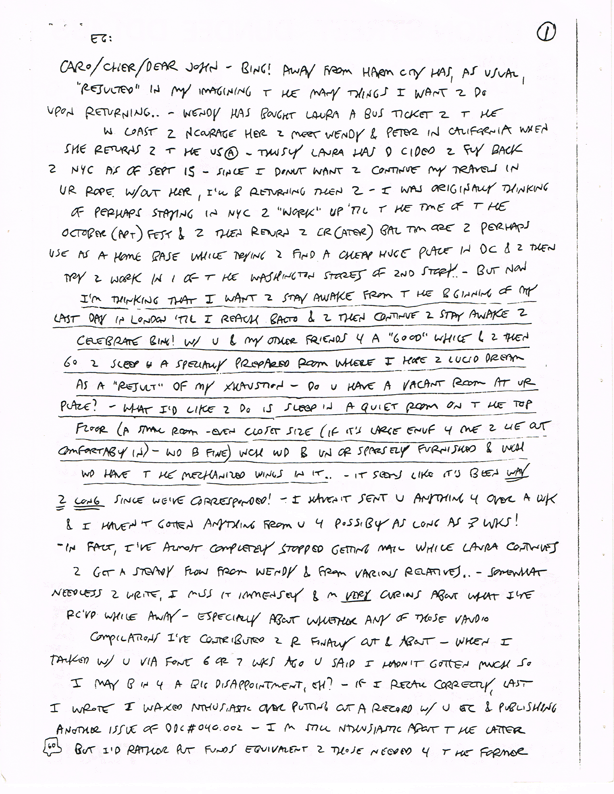 1
EG:
CARO/CHER/DEAR JOHN - BING! AWAY FROM HARM CITY HAS, AS USUAL,
"RESULTED" IN MY IMAGINING T HE MANY THINGS I WANT 2 DO
UPON RETURNING.. - WENDY HAS BOUGHT LAURA A BUS TICKET 2 T HE
W COAST 2 NCOURAGE HER 2 MEET WENDY & PETER IN CALIFORNIA WHEN
SHE RETURNS 2 T HE US(A) - THUSLY LAURA HAS D CIDED 2 FLY BACK
2 NYC AS OF SEPT 15 - SINCE I DONUT WANT 2 CONTINUE MY TRAVELS IN
UR ROPE W/OUT HER, I'LL B RETURNING THEN 2 - I WAS ORIGINALLY THINKING
OF PERHAPS STAYING IN NYC 2 "WORK" UP 'TIL T HE TIME OF T HE
OCTOBER (APT) FEST & 2 THEN RETURN 2 CR(ATER) BAL TIM ORE 2 PERHAPS
USE AS A HOME BASE WHILE TRYING 2 FIND A CHEAP HUGE PLACE IN DC & 2 THEN
TRY 2 WORK IN 1 OF T HE WASHINGTON STORES OF 2ND STORY.. - BUT NOW
I'M THINKING THAT I WANT 2 STAY AWAKE FROM T HE B GINNING OF MY
LAST DAY IN LONDON 'TIL I REACH BALTO & 2 THEN CONTINUE 2 STAY AWAKE 2
CELEBRATE BING! W/ U & MY OTHER FRIENDS 4 A "GOOD" WHILE & 2 THEN
GO 2 SLEEP N A SPECIALLY PREPARED ROOM WHERE I HOPE 2 LUCID DREAM
AS A "RESULT" OF MY XHAUSTION - DO U HAVE A VACANT ROOM AT UR
PLACE? - WHAT I'D LIKE 2 DO IS SLEEP IN A QUIET ROOM ON T HE TOP
FLOOR (A SMALL ROOM - EVEN CLOSET SIZE (IF IT'S LARGE ENUF 4 ME 2 LIE OUT
COMFORTABY IN) - WD B FINE) WCH WD B UN OR SPARSELY FURNISHED & WCH
WD HAVE T HE MECHANIZED WINGS IN IT.. - IT SEEMS LIKE IT'S BEEN WAY
2 LONG SINCE WE'VE CORRESPONDED! - I HAVEN'T SENT U ANYTHING 4 OVER A WK
& I HAVEN'T GOTTEN ANYTHING FROM U 4 POSSIBY AS LONG AS 3 WKS!
- IN FACT, I'VE ALMOST COMPLETELY STOPPED GETTING MAIL WHILE LAURA CONTINUES
2 GET A STEADY FLOW FROM WENDY & FROM VARIOUS RELATIVES.. - SOMEWHAT
NEEDLESS 2 WRITE, I MISS IT IMMENSELY & M VERY CURIUS ABOUT WHAT I'VE
RC'VD WHILE AWAY - ESPECIALLY ABOUT WHETHER ANY OF THOSE VAUDIO
COMPILATIONS I'VE CONTRIBUTED 2 R FINALLY OUT & ABOUT - WHEN I
TALKED W/ U VIA FONE 6 OR 7 WKS AGO U SAID I HADN'T GOTTEN MUCH SO
I MAY B IN 4 A BIG DISAPPOINTMENT, EH? - IF I RECALL CORRECTLY, LAST
I WROTE I WAXED NTHUSIASTIC OVER PUTTING OUT A RECORD W/ U EG & PUBLISHING
ANOTHER ISSUE OF DDC#040.002 - I M STILL NTHUSIASTIC ABOUT T HE LATTER
BUT I'D RATHER PUT FUNDS EQUIVALENT 2 THOSE NEEDED 4 T HE FORMER